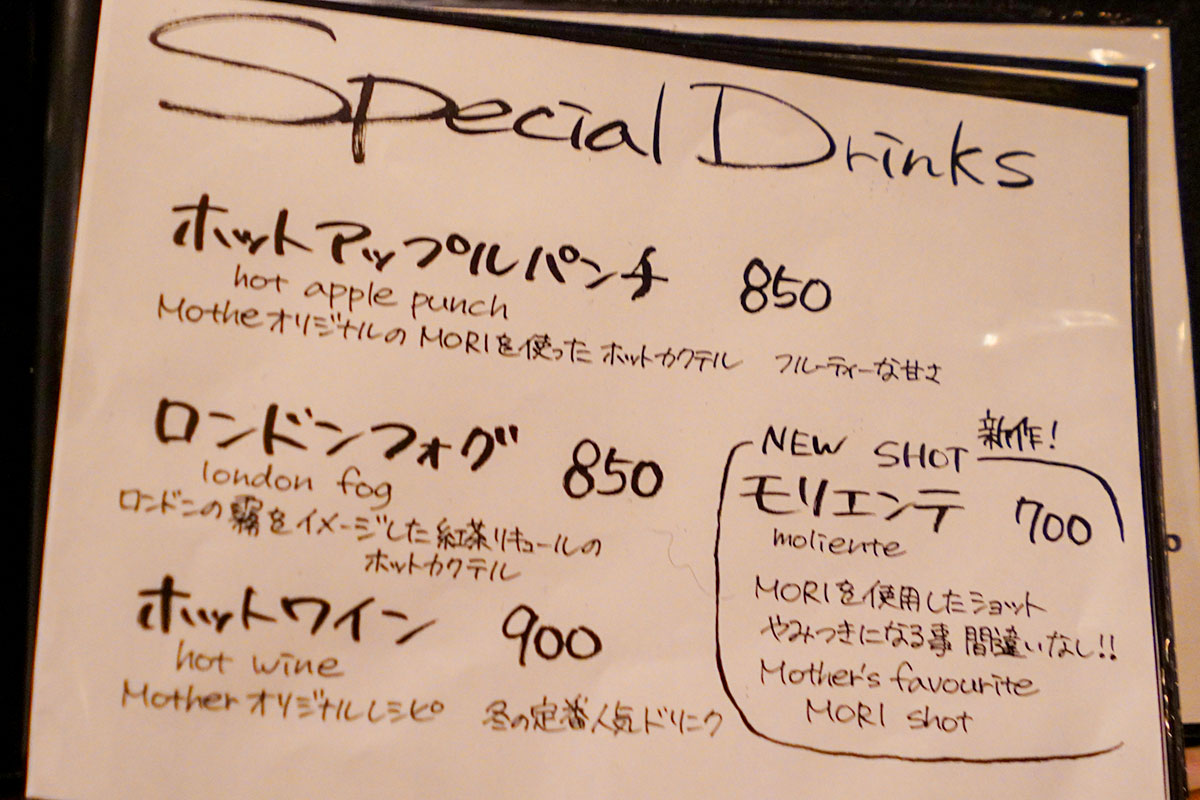 Special Drinks
ホットアップルパンチ 850
hot apple punch
Motheオリジナルの MORIを使った ホットカクテル フルーティーな甘さ
ロンドンフォグ 850
london fog
ロンドンの霧をイメージした紅茶リキュールの
ホットカクテル
ホットワイン 900
hot wine
Mother オリジナルレシピ 冬の定番人気ドリンク
NEW SHOT 新作!
モリエンテ 700
moliente
MORIを使用したショット
やみつきになる事 間違いなし!!
Mother's favourite
MORI shot